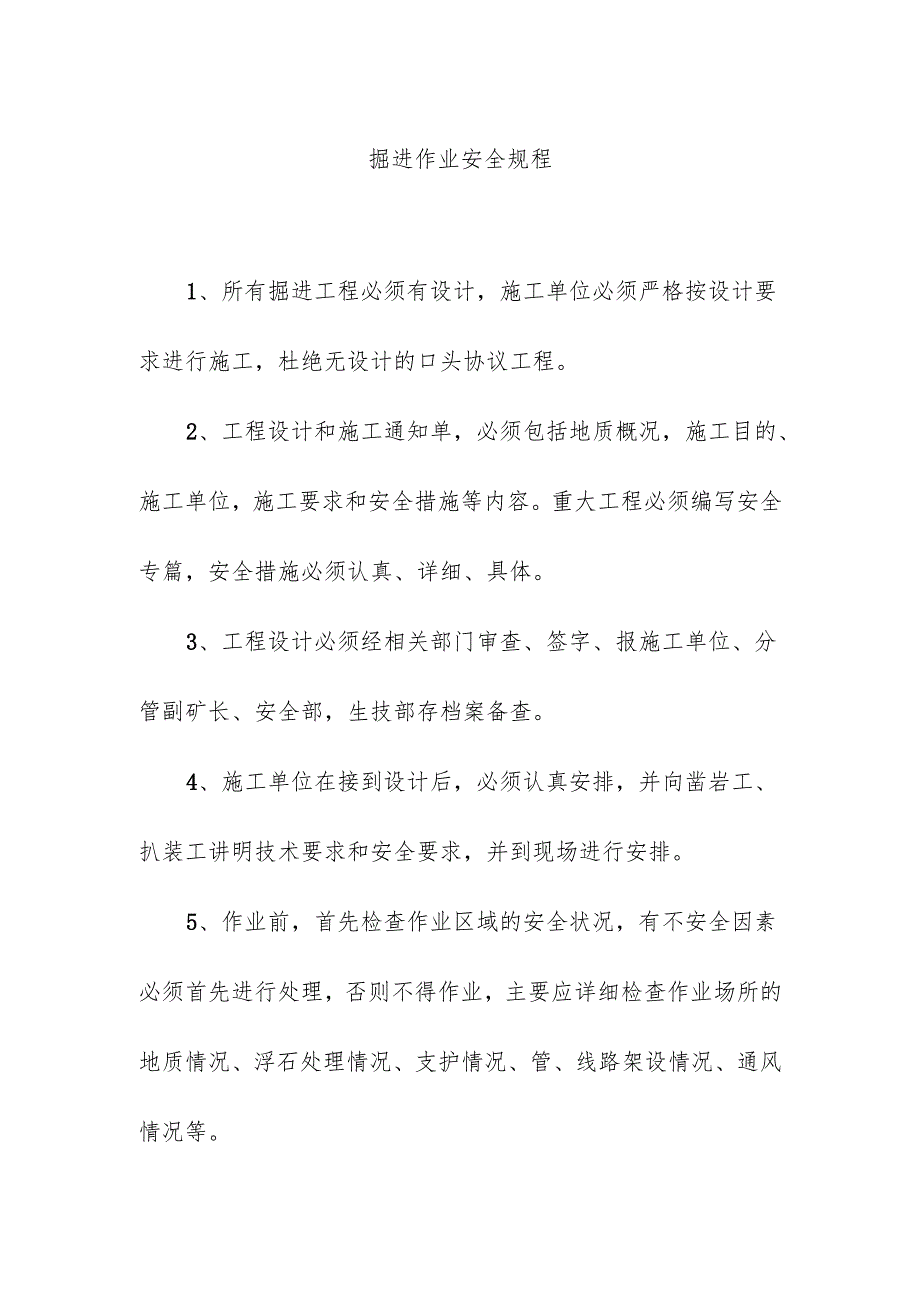 掘进作业安全规程
1、所有掘进工程必须有设计，施工单位必须严格按设计要
求进行施工，杜绝无设计的口头协议工程。
2、工程设计和施工通知单，必须包括地质概况，施工目的、
施工单位，施工要求和安全措施等内容。重大工程必须编写安全
专篇，安全措施必须认真、详细、具体。
3、工程设计必须经相关部门审查、签字、报施工单位、分
管副矿长、安全部，生技部存档案备查。
4、施工单位在接到设计后，必须认真安排，并向凿岩工、
扒装工讲明技术要求和安全要求，并到现场进行安排。
5、作业前，首先检查作业区域的安全状况，有不安全因素
必须首先进行处理，否则不得作业，主要应详细检查作业场所的
地质情况、浮石处理情况、支护情况、管、线路架设情况、通风
情况等。